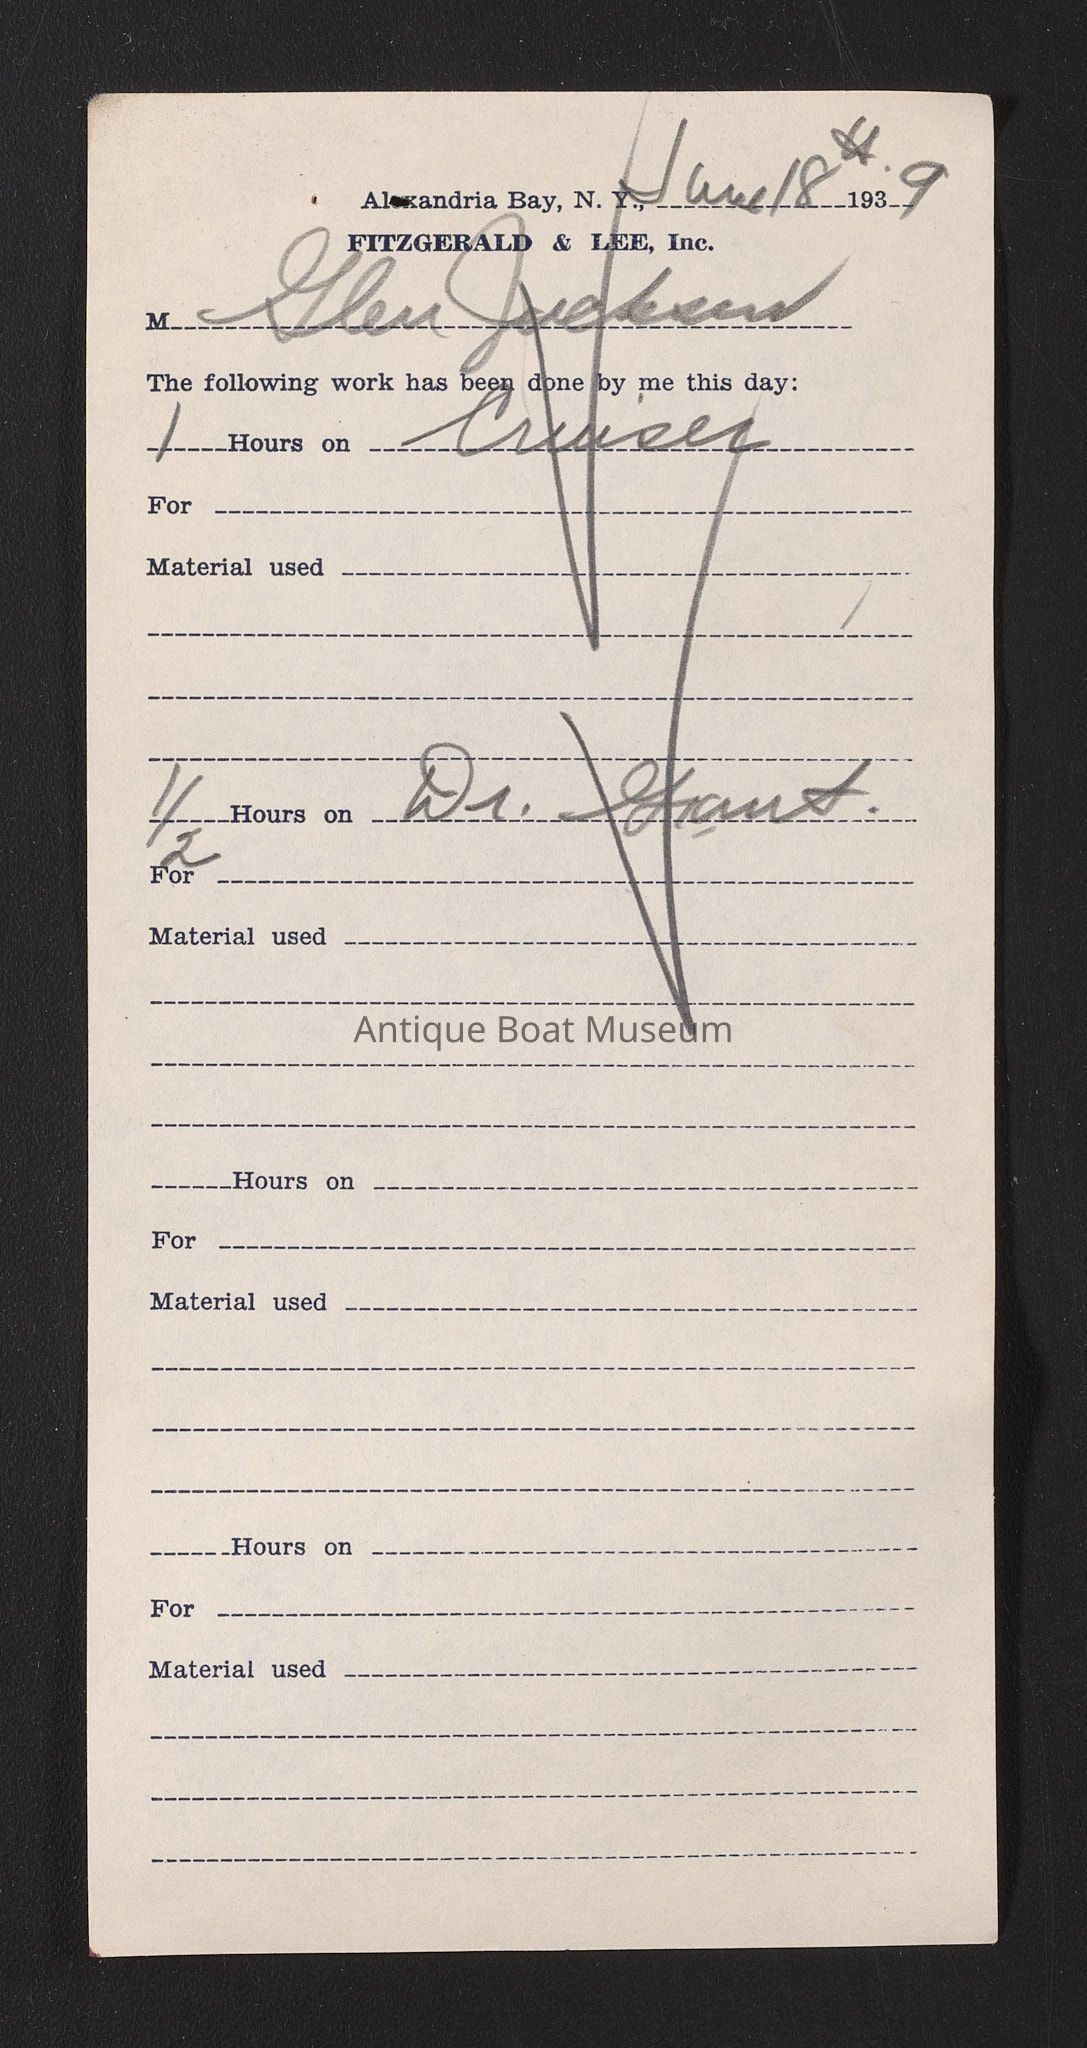 Alexandria Bay, N. Y., June 18th. 1939
FITZGERALD & LEE, Inc.
M Glen Jackson
The following work has been done by me this day:
1 Hours on Cruiser
For
Material used
1/2 Hours on Dr. Grant.
For
Material used
Antique Boat Museum
Hours on
For
Material used
Hours on
For
Material used